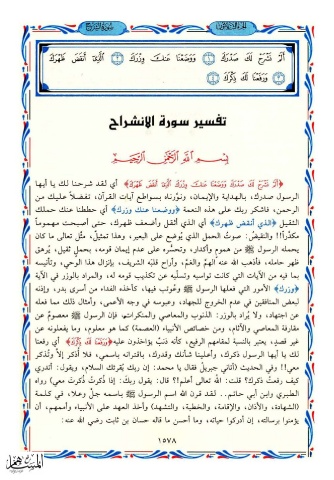 الجزء الثلاثون سورة الشرح
أَلَمْ نَشْرَحْ لَكَ صَدْرَكَ ١ وَوَضَعْنَا عَنكَ وِزْرَكَ ٢ الَّذِي أَنقَضَ ظَهْرَكَ
٣ وَرَفَعْنَا لَكَ ذِكْرَكَ
تفسير سورة الإنشراح
بسم الله الرحمن الرحيم
﴿أَلَمْ نَشْرَحْ لَكَ صَدْرَكَ وَوَضَعْنَا عَنكَ وِزْرَكَ الَّذِي أَنقَضَ ظَهْرَكَ﴾ أي لقد شرحنا لك يا أيها
الرسول صدرك، بالهداية والإيمان، ونوّرناه بسواطع آيات القرآن، تفضلاً عليك من
الرحمن، فاشكر ربك على هذه النعمة ﴿ووضعنا عنك وزرك﴾ أي حططنا عنك حملك
الثقيل ﴿الذي أنقض ظهرك﴾ أي الذي أثقل وأضعف ظهرك، حتى أصبحت مهموماً
مكدّراً!! والنقيضُ: صوتُ الحمل الذي يُوضع على البعير، وهذا تمثيلٌ، مثّل تعالى ما كان
يحمله الرسول ﷺ من هموم وأكدار، وتحسُّره على عدم إيمان قومه، بحملٍ ثقيل، يُرهق
ظهر حامله، فأذهب الله عنه الهمَّ والغمَّ، وأراح قلبه الشريف، بإنزال هذا الوحي، وتأنيسه
بما فيه من الآيات التي كانت تواسيه وتسلّيه عن تكذيب قومه له، والمراد بالوزر في الآية
﴿وزرك﴾ الأمور التي فعلها الرسول ﷺ وعُوتب فيها، كأخذه الفداء من أسرى بدر، وإذنه
لبعض المنافقين في عدم الخروج للجهاد، وعبوسه في وجه الأعمى، وأمثال ذلك مما فعله
عن اجتهاد، ولا يُراد بالوزر: الذنوب والمعاصي والمنكرات؛ فإن الرسول ﷺ معصومٌ عن
مقارفة المعاصي والآثام، ومن خصائص الأنبياء (العصمة) كما هو معلوم، وما يفعلونه عن
غير قصدٍ، يعتبر بالنسبة لمقامهم الرفيع، كأنه ذنبٌ يؤاخذون عليه ﴿وَرَفَعْنَا لَكَ ذِكْرَكَ﴾ أي رفعنا
لك يا أيها الرسول ذكرك، وأعلينا شأنك وقدرك، باقترانه باسمي، فلا أُذكر إلا وتُذكر
معي!! وفي الحديث (أتاني جبريلُ فقال يا محمد: إن ربك يُقرئك السلام، ويقول: أتدري
كيف رفعتُ ذكرك؟ قلت: الله تعالى أعلم!! قال: يقول ربك: إذا ذُكرتُ ذُكرتَ معي) رواه
الطبري وابن أبي حاتم.. لقد قرن الله اسم الرسول ﷺ باسمه جلَّ وعلا، في كلمة
(الشهادة، والأذان، والإقامة، والخطبة، والتشهد) وأخذ العهد على الأنبياء وأممهم، أن
يؤمنوا برسالته، إن أدركوا حياته، وما أحسن ما قاله حسان بن ثابت رضي الله عنه:
١٥٧٨